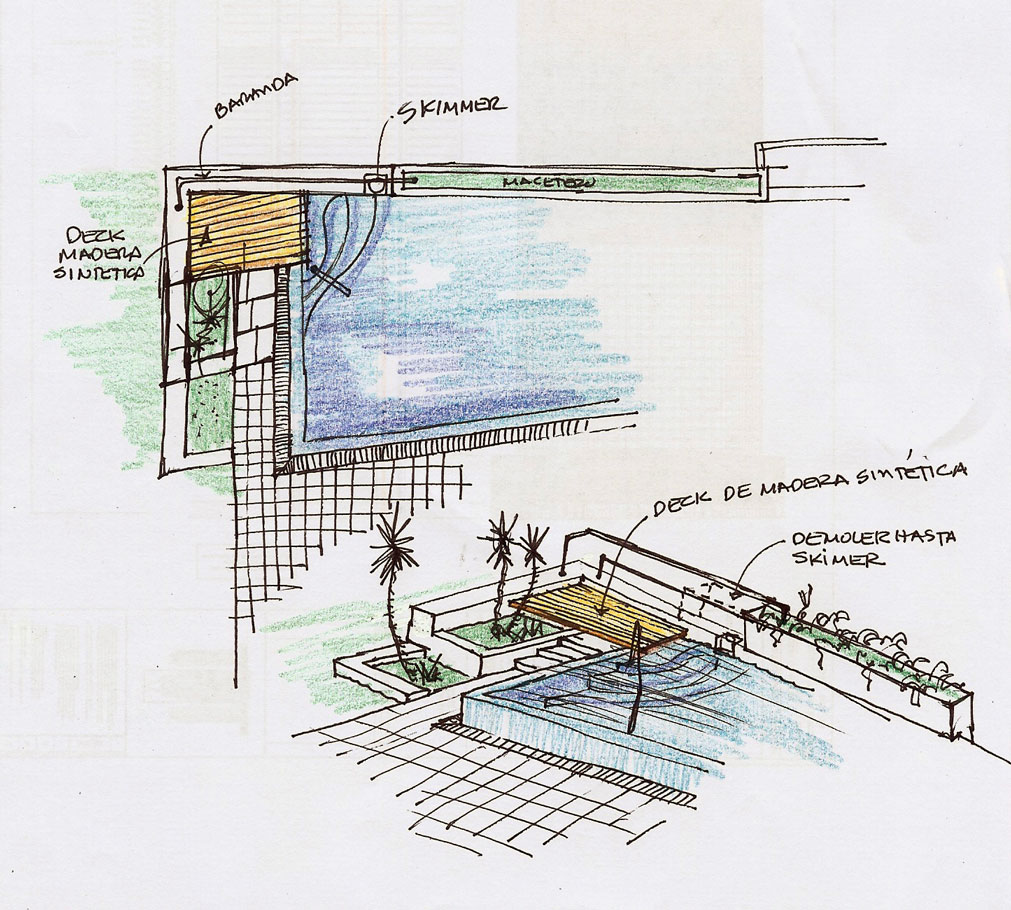 BARANDA
SKIMMER
MACETERO
DECK
MADERA
SINTETICA
DECK DE MADERA SINTÉTICA
DEMOLER HASTA
SKIMER